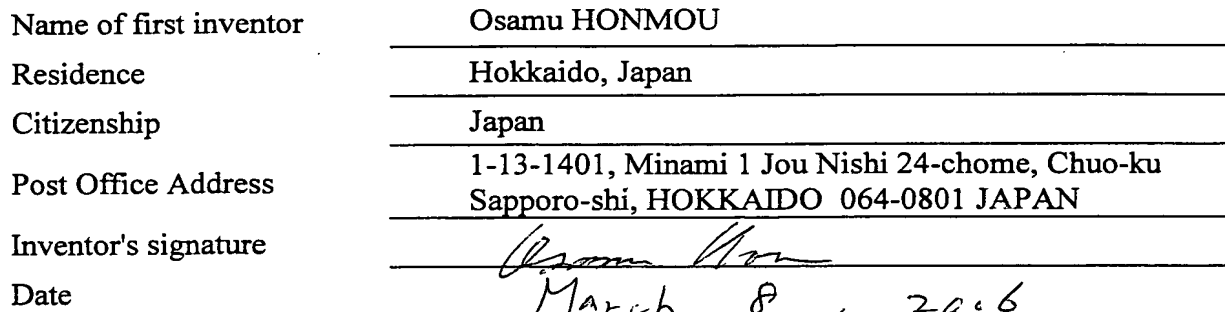 Name of first inventor Osamu HONMOU
Residence Hokkaido, Japan
Citizenship Japan
Post Office Address 1-13-1401, Minami 1 Jou Nishi 24-chome, Chuo-ku
Sapporo-shi, HOKKAIDO 064-0801 JAPAN
Inventor's signature Osamu Hon
Date March 8, 2006